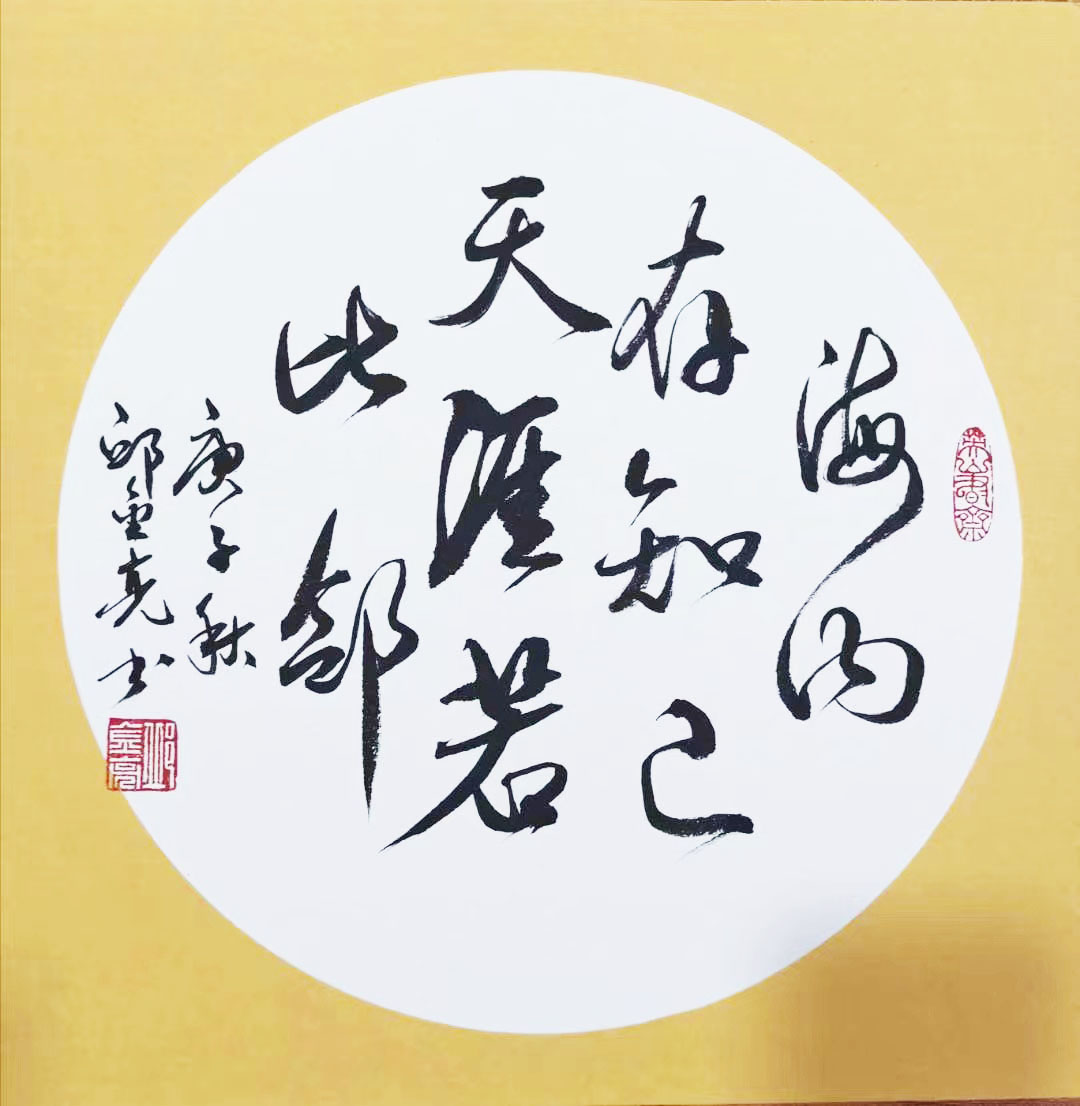 海内
存知己
天涯若
比邻
庚子秋
邱金亮书
邱金亮